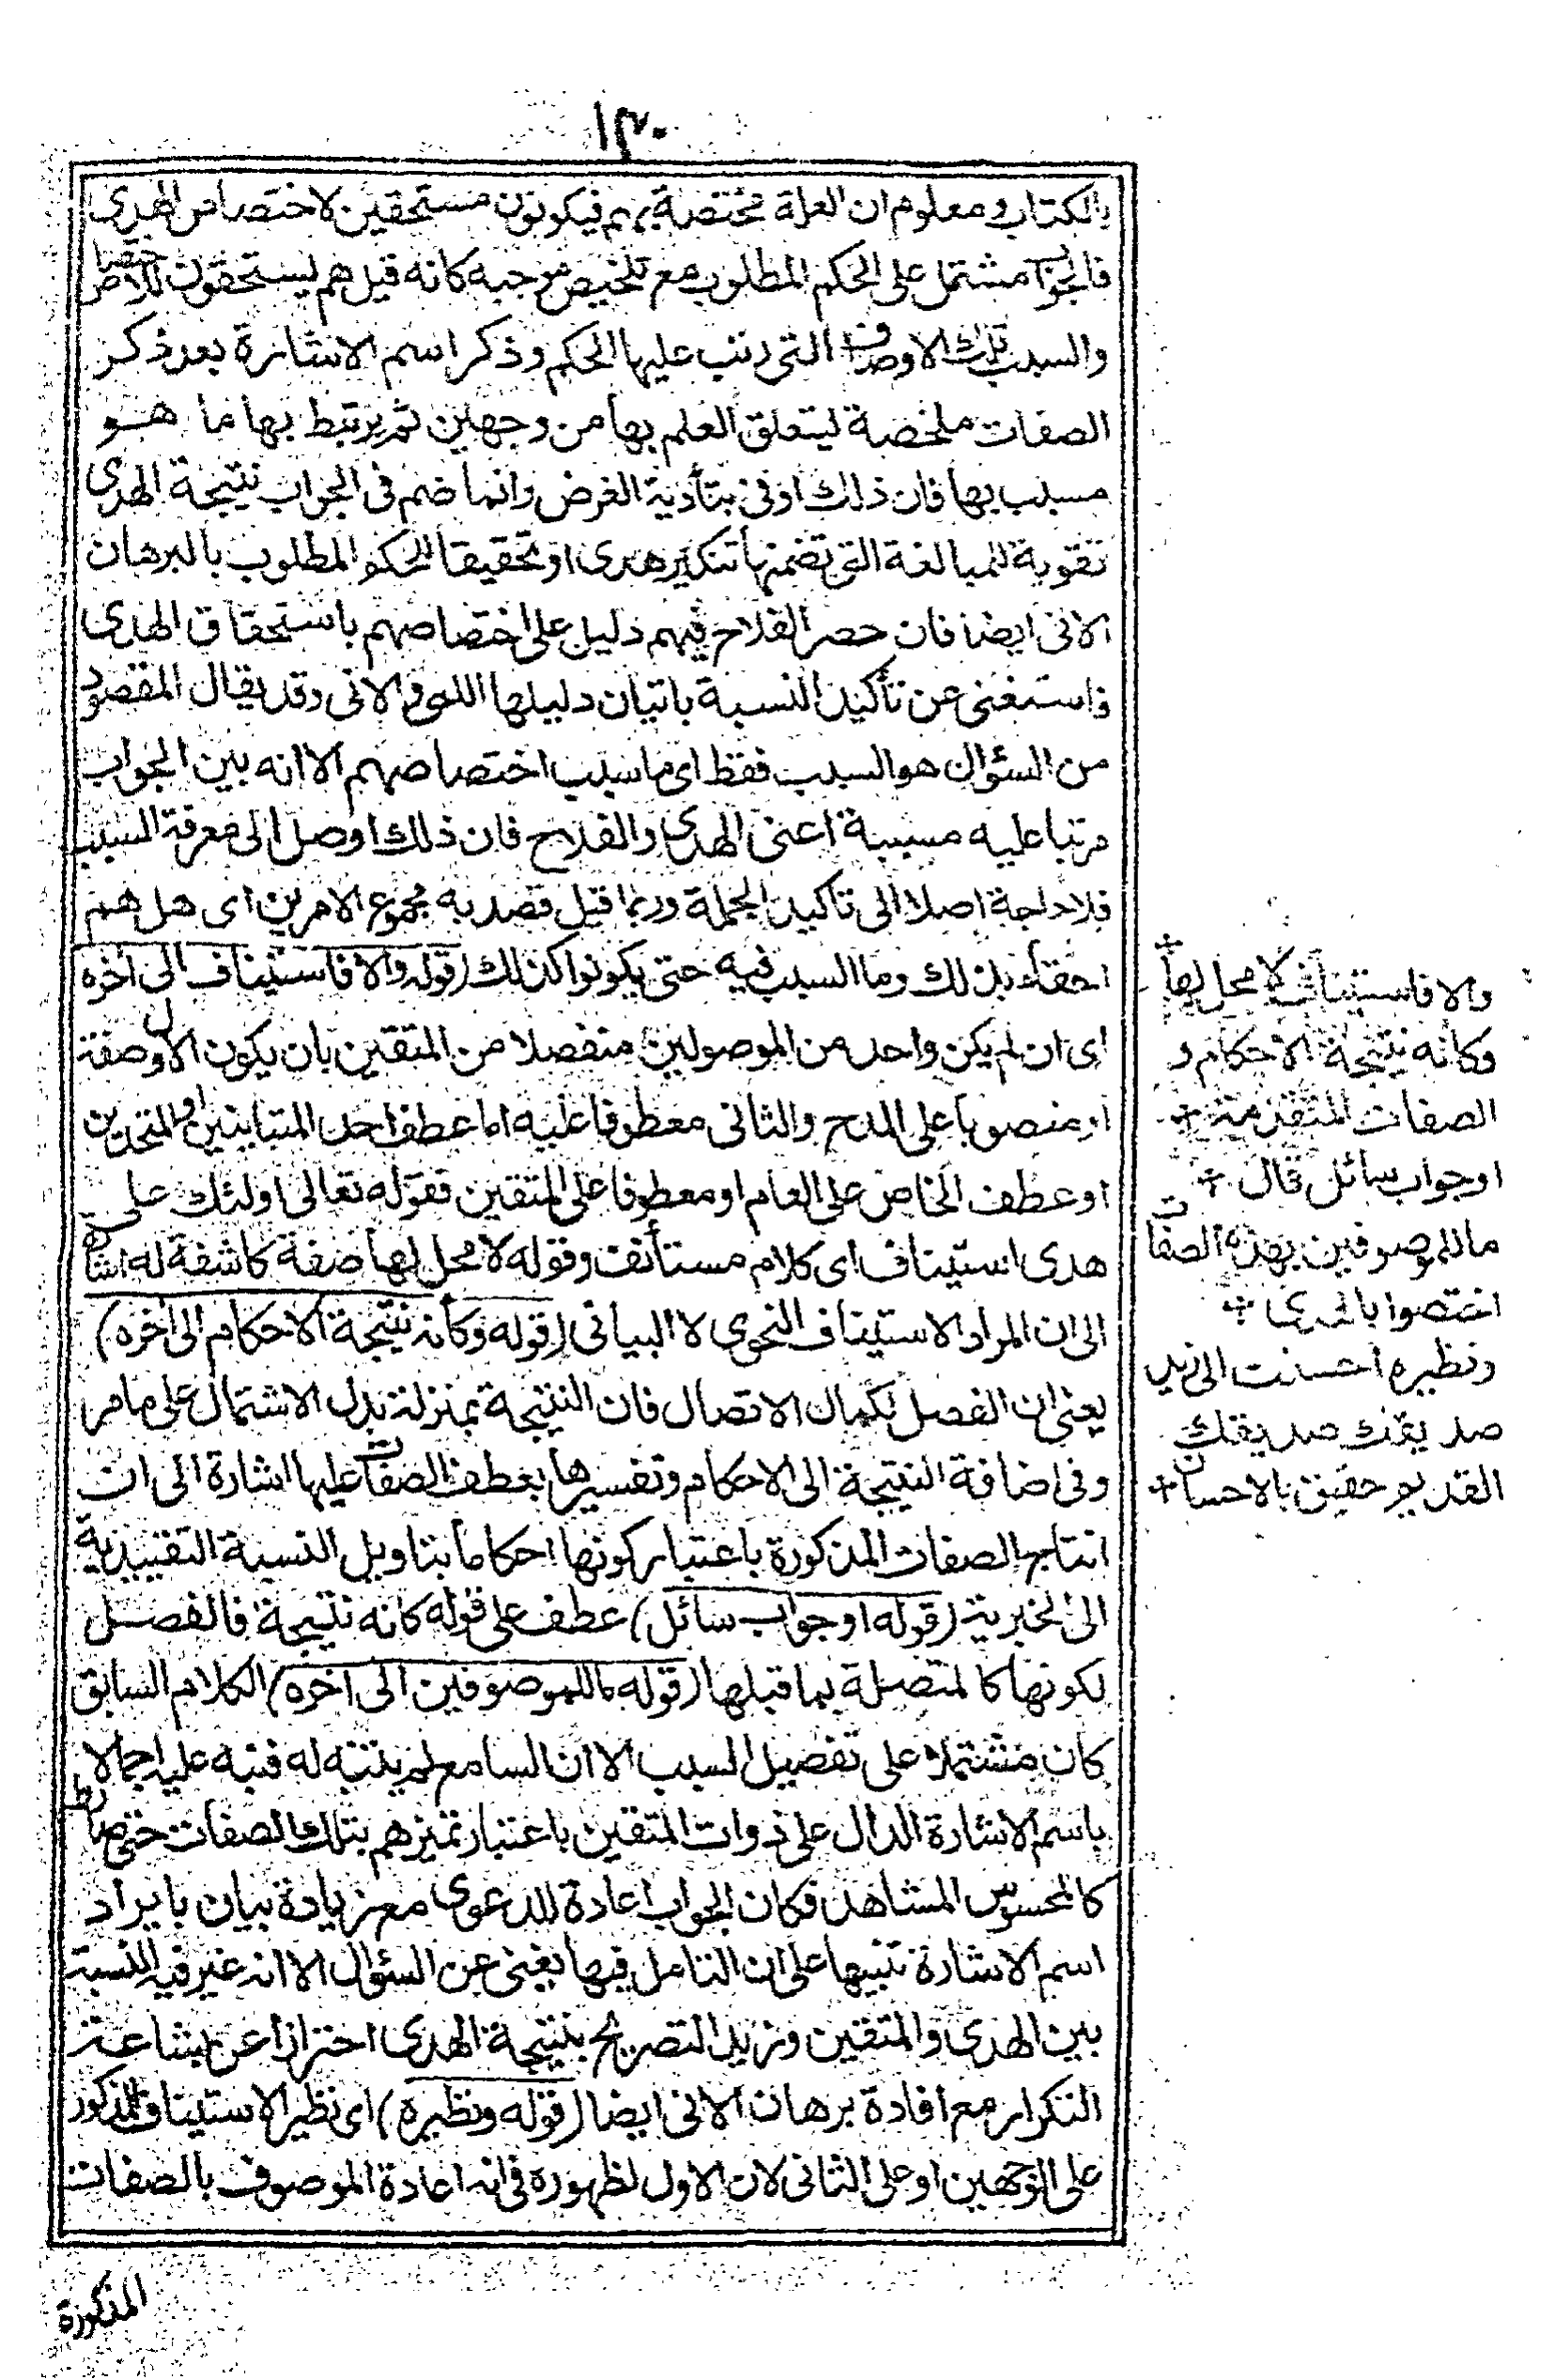 ١٣٠
بالكتاب ومعلوم ان العلة مختصة بهم فيكونون مستحقين لاختصاص الهدى
فالجواب مشتمل على الحكم المطلوب مع تلخيص موجبه كانه قيل هم يستحقون للاختصاص
والسبب تلك الاوصاف التى رتب عليها الحكم وذكر اسم الاشارة بعد ذكر
الصفات ملخصة ليتعلق العلم بها من وجهين ثم يرتبط بها ما هو
مسبب بها فان ذلك اوفى بتأدية الغرض وانما ضم فى الجواب نتيجة الهدى
تقوية للمبالغة التى تضمنها تنكير هدى او تحقيقا للحكم المطلوب بالبرهان
الانى ايضا فان حصر الفلاح فيهم دليل على اختصاصهم باستحقاق الهدى
فاستغنى عن تأكيد النسبة باتيان دليلها اللمى والانى وقد يقال المقصود
من السؤال هو السبب فقط اى ما سبب اختصاصهم الا انه بين الجواب
مرتبا عليه مسببة اعنى الهدى والفلاح فان ذلك اوصل الى معرفة السبب
فلا حاجة اصلا الى تاكيد الجملة وربما قيل قصد به مجموع الامرين اى هل هم
احقاء بذلك وما السبب فيه حتى يكونوا كذلك (قوله والا فاستيناف الى اخره
اى ان لم يكن واحد من الموصولين منفصلا من المتقين بان يكون الاول صفة
او منصوبا على المدح والثانى معطوفا عليه اما عطف احد المتباينين او المتحدين
او عطف الخاص على العام او معطوفا على المتقين فقوله تعالى اولئك على
هدى استيناف اى كلام مستأنف وقوله لا محل لها صفة كاشفة له اشارة
الى ان المراد الاستيناف النحوى لا البيانى (قوله وكأنه نتيجة الاحكام الى اخره)
يعنى ان الفصل لكمال الاتصال فان النتيجة بمنزلة بدل الاشتمال على ما مر
وفى اضافة النتيجة الى الاحكام وتفسيرها بعطف الصفات عليها اشارة الى ان
انتاجها الصفات المذكورة باعتبار كونها احكاما بتاويل النسبة التقييدية
الى الخبرية (قوله او جواب سائل) عطف على قوله كانه نتيجة فالفصل
لكونها كالمتصلة بما قبلها (قوله ماللموصوفين الى اخره) الكلام السابق
كان مشتملا على تفصيل السبب الا ان السامع لم يتنبه له فنبه عليه اجمالا
باسم الاشارة الدال على ذوات المتقين باعتبار تميزهم بتلك الصفات حتى صاروا
كالمحسوس المشاهد فكان الجواب اعادة للدعوى مع زيادة بيان بايراد
اسم الاشارة تنبيها على ان التامل فيها يغنى عن السؤال الا انه غير فيه النسبة
بين الهدى والمتقين وزيد التصريح بنتيجة الهدى احترازا عن بشاعة
التكرار مع افادة برهان الانى ايضا (قوله ونظيره) اى نظير الاستيناف المذكور
على الوجهين او على الثانى لان الاول لظهوره فى انه اعادة الموصوف بالصفات
المذكورة
والا فاستيناف لا محل لها
وكأنه نتيجة الاحكام و
الصفات المتقدمة
او جواب سائل قال
ماللموصوفين بهذه الصفات
اختصوا بالهدى
ونظيره احسنت الى زيد
صديقك صديقك
القديم حقيق بالاحسان